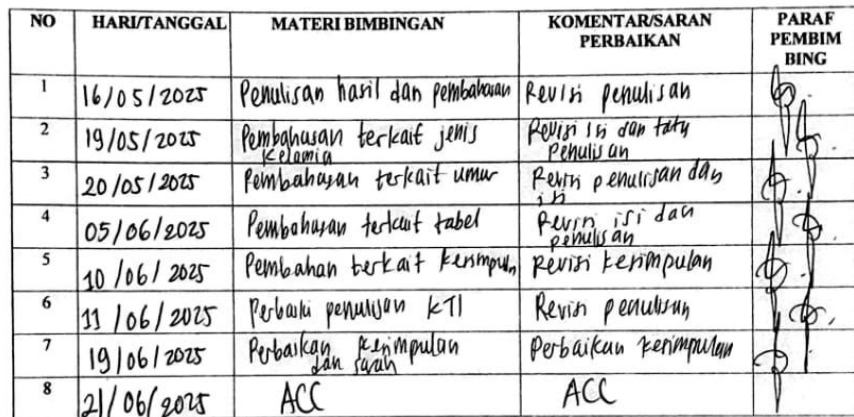 NO HARI/TANGGAL MATERI BIMBINGAN KOMENTAR/SARAN PERBAIKAN PARAF PEMBIM BING
1 16/05/2025 Penulisan hasil dan pembahasan Revisi penulisan
2 19/05/2025 Pembahasan terkait jenis kelamia Revisi isi dan tata penulisan
3 20/05/2025 Pembahasan terkait umur Revisi penulisan dan isi
4 05/06/2025 Pembahasan terkait tabel Revisi isi dan penulisan
5 10/06/2025 Pembahan terkait kesimpulan Revisi kesimpulan
6 11/06/2025 Perbaiki penulisan KTI Revisi penulisan
7 19/06/2025 Perbaikan kesimpulan dan saran Perbaikan kesimpulan
8 21/06/2025 ACC ACC